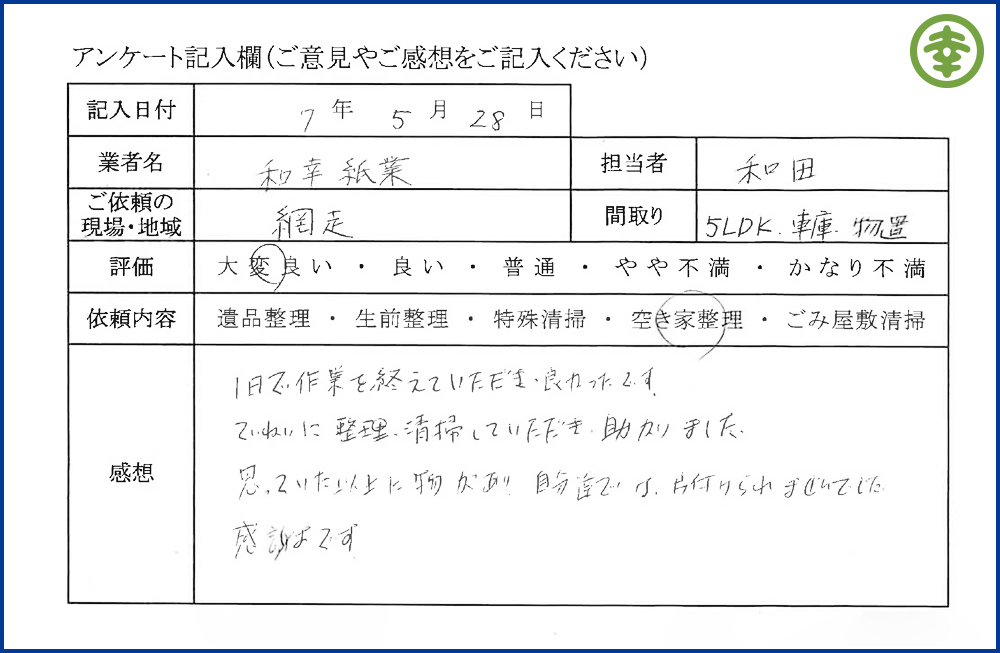 幸
アンケート記入欄（ご意見やご感想をご記入ください）
記入日付 7 年 5 月 28 日
業者名 和幸紙業 担当者 和田
ご依頼の
現場・地域 網走 間取り 5LDK.車庫.物置
評価 大変良い ・ 良い ・ 普通 ・ やや不満 ・ かなり不満
依頼内容 遺品整理 ・ 生前整理 ・ 特殊清掃 ・ 空き家整理 ・ ごみ屋敷清掃
感想
1日で作業を終えていただき、良かったです
ていねいに整理、清掃していただき、助かりました。
思っていた以上に物があり、自分達では、片付けられませんでした
感謝です